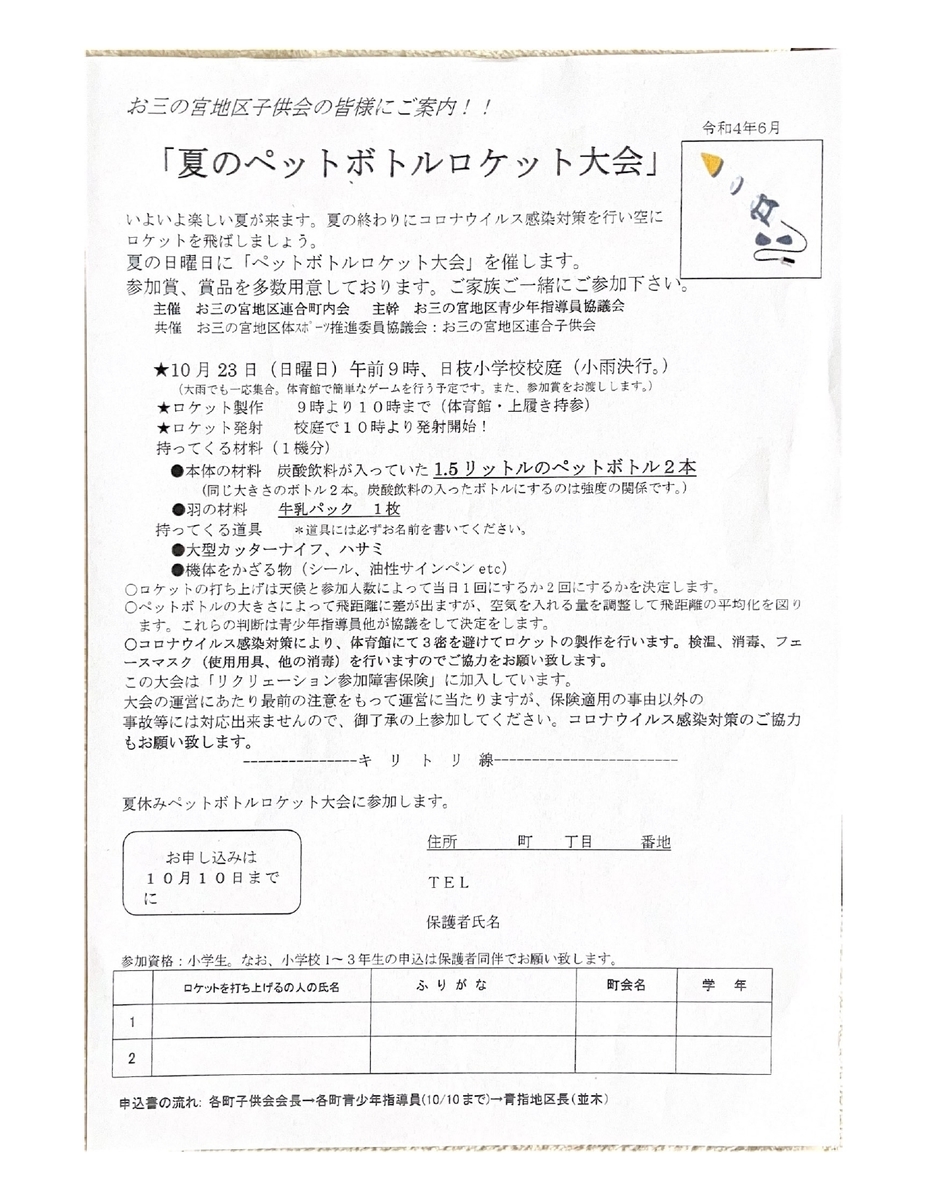 お三の宮地区子供会の皆様にご案内！！
令和4年6月
「夏のペットボトルロケット大会」
いよいよ楽しい夏が来ます。夏の終わりにコロナウイルス感染対策を行い空に
ロケットを飛ばしましょう。
夏の日曜日に「ペットボトルロケット大会」を催します。
参加賞、賞品を多数用意しております。ご家族ご一緒にご参加下さい。
主催　お三の宮地区連合町内会　主幹　お三の宮地区青少年指導員協議会
共催　お三の宮地区体ｽﾎﾟｰﾂ推進委員協議会：お三の宮地区連合子供会
★10月23日（日曜日）午前９時、日枝小学校校庭（小雨決行。）
（大雨でも一応集合。体育館で簡単なゲームを行う予定です。また、参加賞をお渡しします。）
★ロケット製作　９時より１０時まで（体育館・上履き持参）
★ロケット発射　校庭で１０時より発射開始！
持ってくる材料（１機分）
●本体の材料　炭酸飲料が入っていた1.5リットルのペットボトル２本
（同じ大きさのボトル２本。炭酸飲料の入ったボトルにするのは強度の関係です。）
●羽の材料　牛乳パック　１枚
持ってくる道具　＊道具には必ずお名前を書いてください。
●大型カッターナイフ、ハサミ
●機体をかざる物（シール、油性サインペンetc）
○ロケットの打ち上げは天候と参加人数によって当日１回にするか２回にするかを決定します。
○ペットボトルの大きさによって飛距離に差が出ますが、空気を入れる量を調整して飛距離の平均化を図り
ます。これらの判断は青少年指導員他が協議をして決定をします。
○コロナウイルス感染対策により、体育館にて３密を避けてロケットの製作を行います。検温、消毒、フェ
ースマスク（使用用具、他の消毒）を行いますのでご協力をお願い致します。
この大会は「リクリェーション参加障害保険」に加入しています。
大会の運営にあたり最前の注意をもって運営に当たりますが、保険適用の事由以外の
事故等には対応出来ませんので、御了承の上参加してください。コロナウイルス感染対策のご協力
もお願い致します。
---------------キ　リ　ト　リ　線------------------------
夏休みペットボトルロケット大会に参加します。
住所　　　町　　丁目　　　番地
お申し込みは
１０月１０日まで
に
ＴＥＬ
保護者氏名
参加資格：小学生。なお、小学校１～３年生の申込は保護者同伴でお願い致します。
ロケットを打ち上げるの人の氏名　ふりがな　町会名　学　年
1
2
申込書の流れ: 各町子供会会長→各町青少年指導員(10/10まで)→青指地区長（並木）